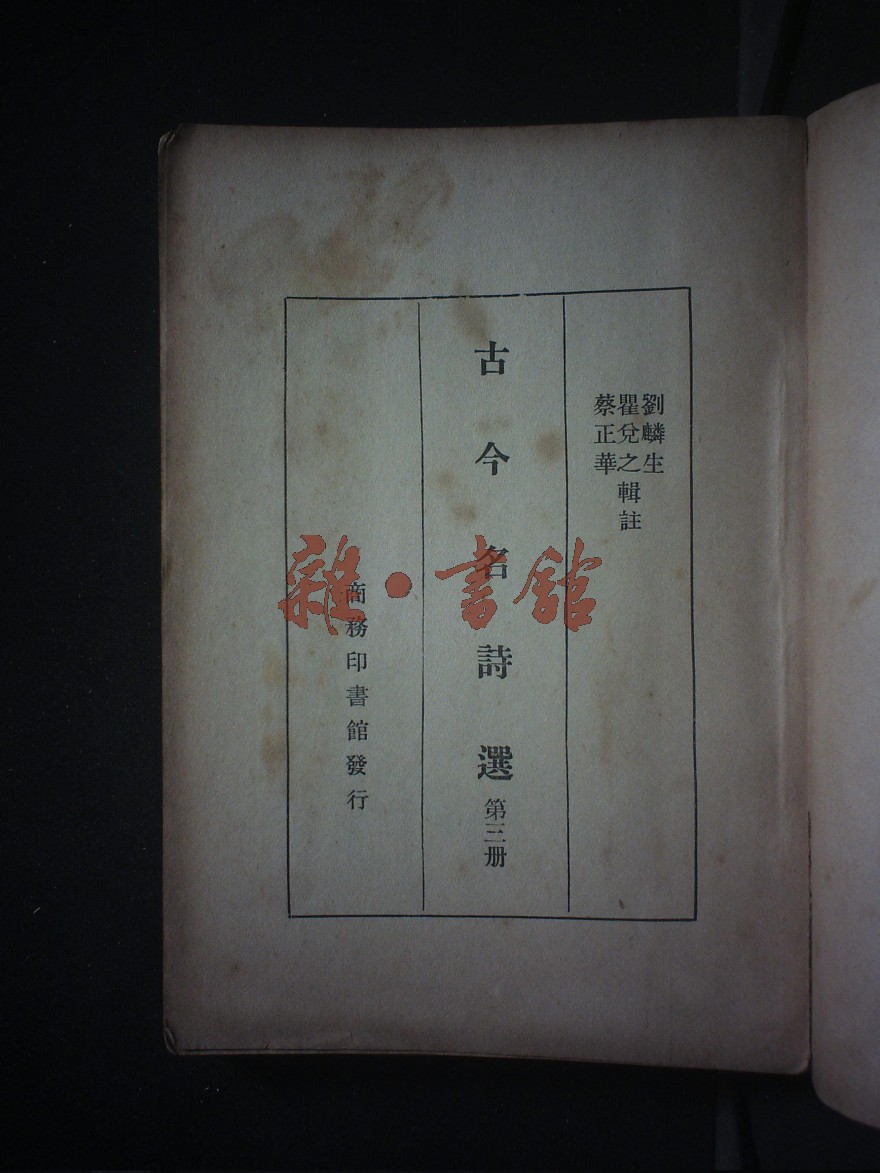 劉麟生
瞿兌之輯註
蔡正華
古今名詩選 第三册
商務印書館發行
雜·書館